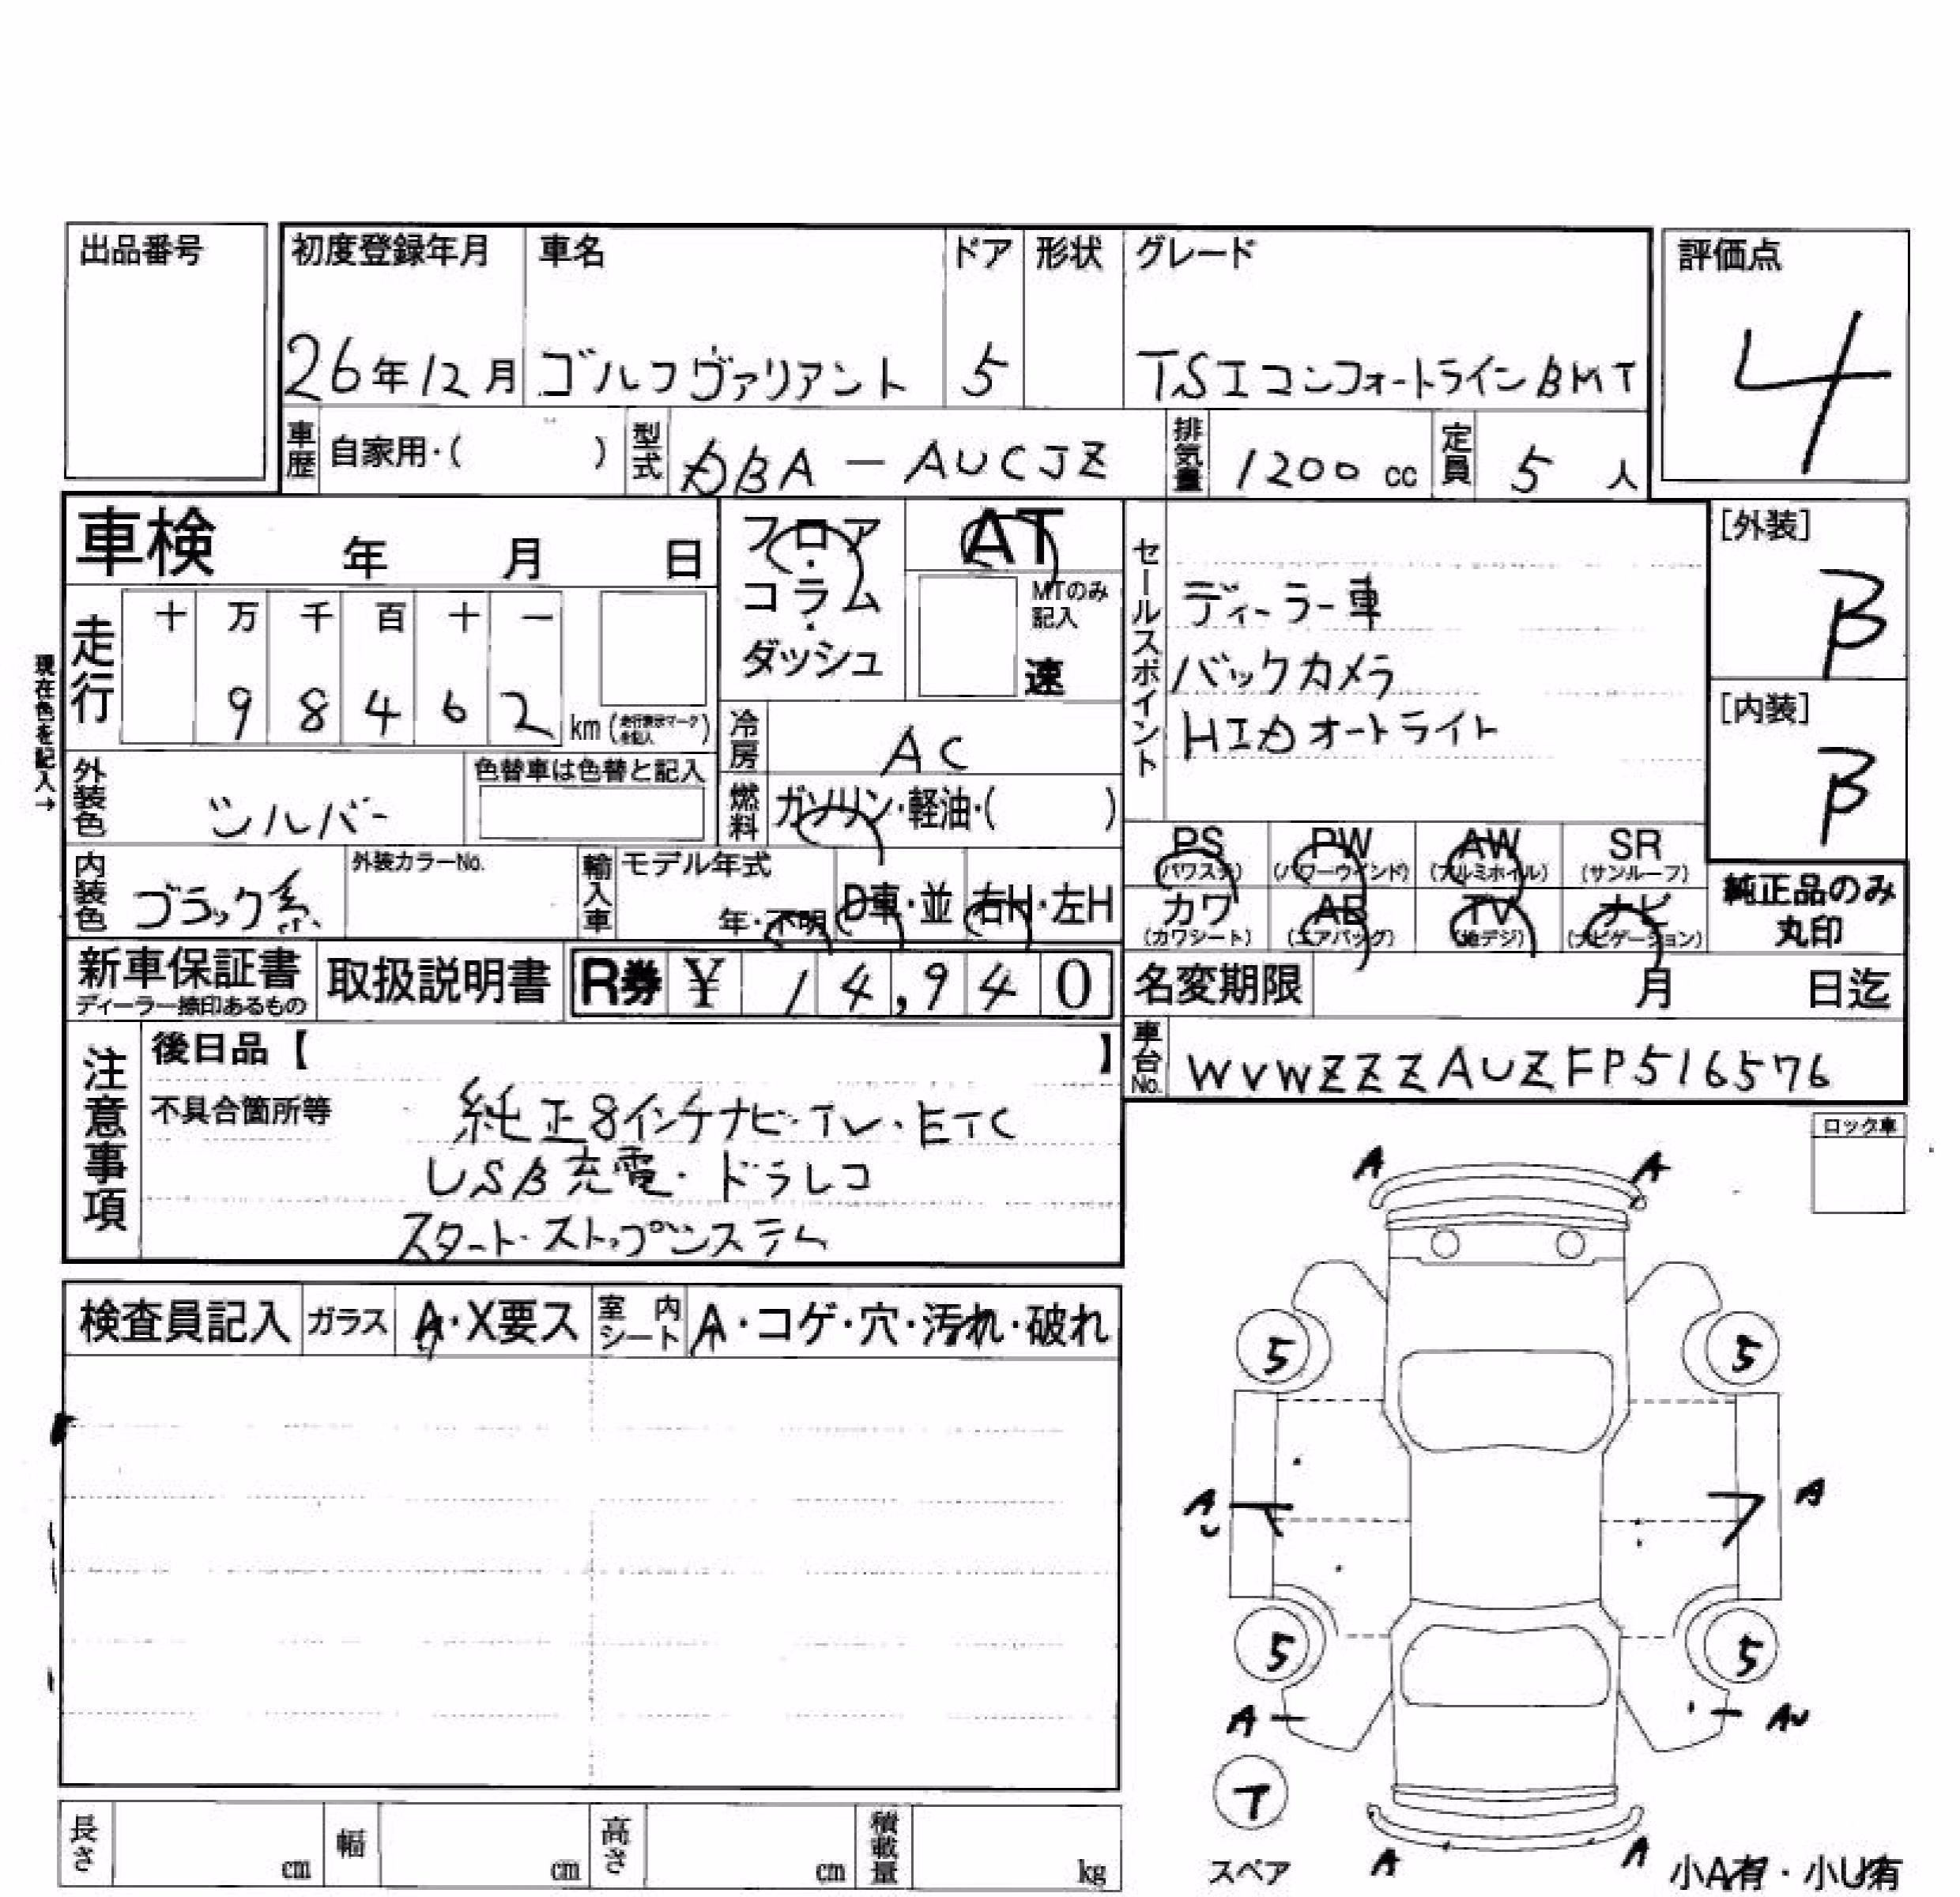 出品番号
初度登録年月 車名 ドア 形状 グレード 評価点
26年12月 ゴルフヴァリアント 5 TSIコンフォートラインBMT 4
車歴 自家用・( ) 型式 DBA-AUCJZ 排気量 1200cc 定員 5人
車検 年 月 日
フロア・コラム・ダッシュ
AT
MTのみ記入 速
走行 十 万 千 百 十 一
9 8 4 6 2 km (走行表示マークを記入)
現在色を記入→
冷房 AC
外装色 シルバー 色替車は色替と記入
燃料 ガソリン・軽油・( )
内装色 ブラック系 外装カラーNo.
輸入車 モデル年式 年・不明 D車・並 右H・左H
セールスポイント
ディーラー車
バックカメラ
HIDオートライト
[外装] B
[内装] B
PS (パワステ) PW (パワーウインド) AW (アルミホイル) SR (サンルーフ)
カワ (カワシート) AB (エアバッグ) TV (地デジ) ナビ (ナビゲーション)
純正品のみ丸印
新車保証書 ディーラー捺印あるもの 取扱説明書 R券 ¥ 14,940
名変期限 月 日迄
車台No. WVWZZZAUZFP516576
注意事項
後日品【 】
不具合箇所等 純正8インチナビ・TV・ETC
USB充電・ドラレコ
スタート・ストップシステム
ロック車
検査員記入 ガラス A・X要ス 室内シート A・コゲ・穴・汚れ・破れ
A A
5 5
A U A
5 5
A AU
T
スペア
A A
小A有・小U有
長さ cm 幅 cm 高さ cm 積載量 kg